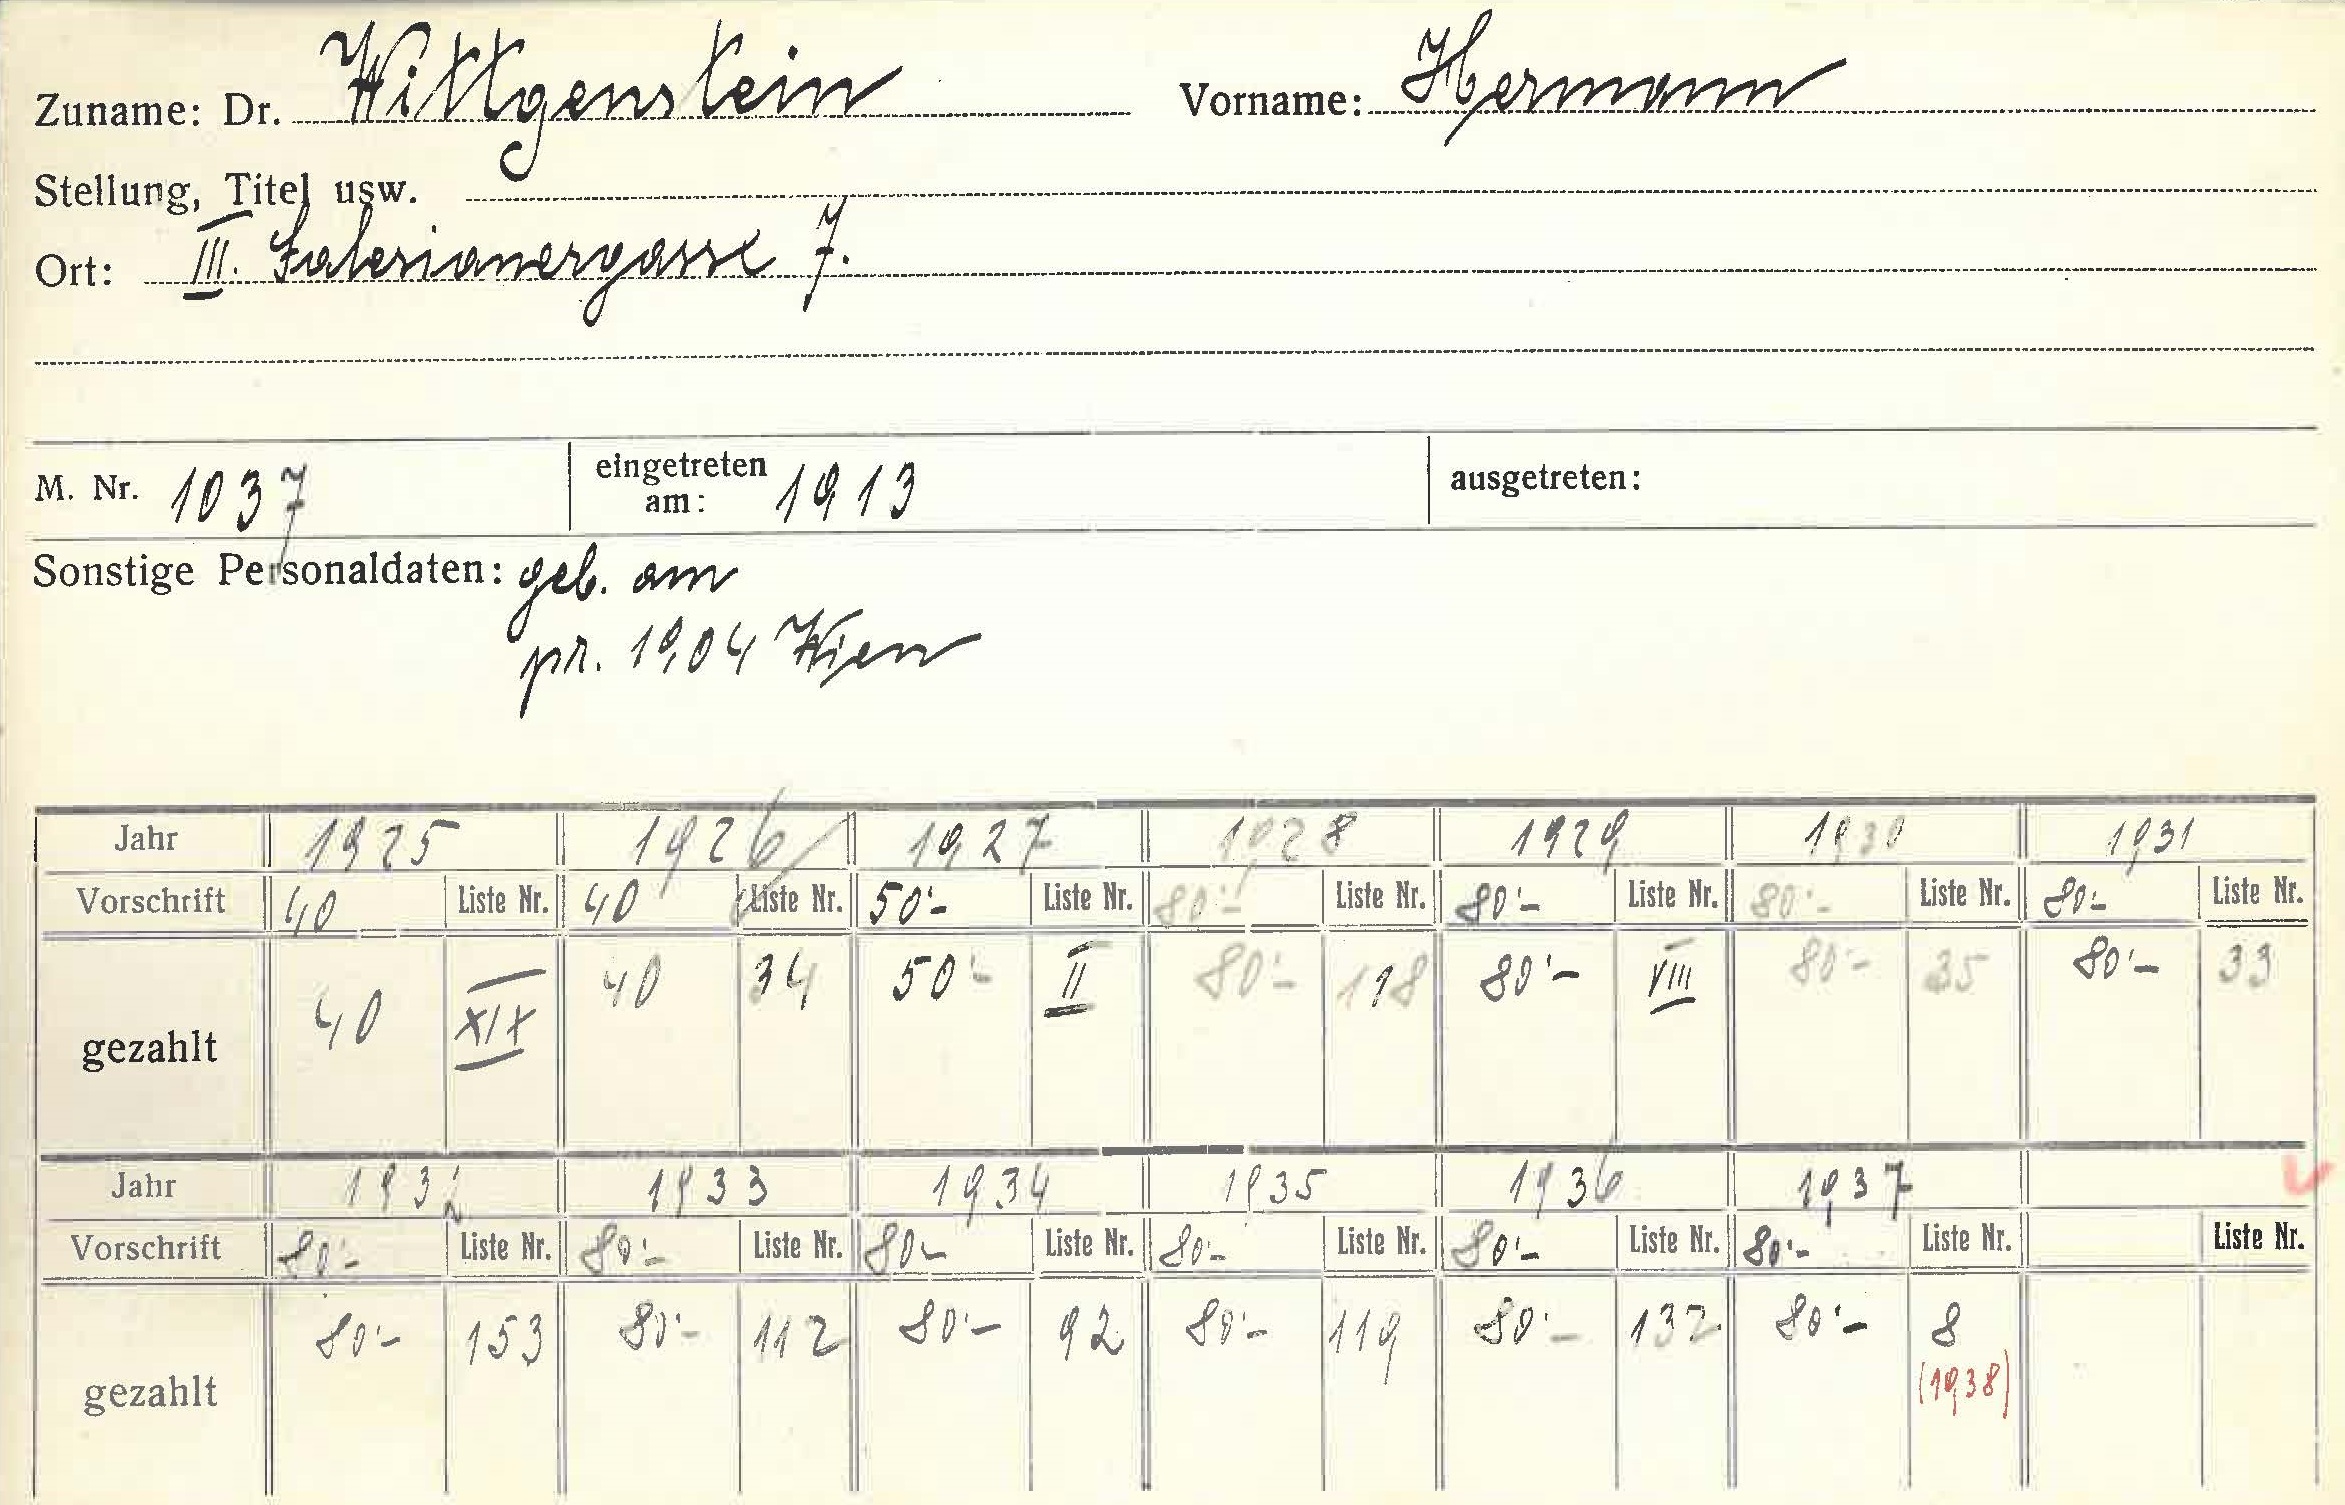 Zuname: Dr. Wittgenstein Vorname: Hermann
Stellung, Titel usw.
Ort: III. Salesianergasse 7.
M. Nr. 1037 eingetreten am: 1913 ausgetreten:
Sonstige Personaldaten: geb. am
pr. 1904 Wien
Jahr 1925 1926 1927 1928 1929 1930 1931
Vorschrift 40 Liste Nr. 40 Liste Nr. 50'- Liste Nr. 80'- Liste Nr. 80'- Liste Nr. 80'- Liste Nr. 80'- Liste Nr.
gezahlt 40 XIX 40 34 50'- II 80'- 118 80'- VIII 80'- 35 80'- 33
Jahr 1932 1933 1934 1935 1936 1937
Vorschrift 80'- Liste Nr. 80'- Liste Nr. 80'- Liste Nr. 80'- Liste Nr. 80'- Liste Nr. 80'- Liste Nr. Liste Nr.
gezahlt 80'- 153 80'- 112 80'- 92 80'- 119 80'- 132 80'- 8
(1938)